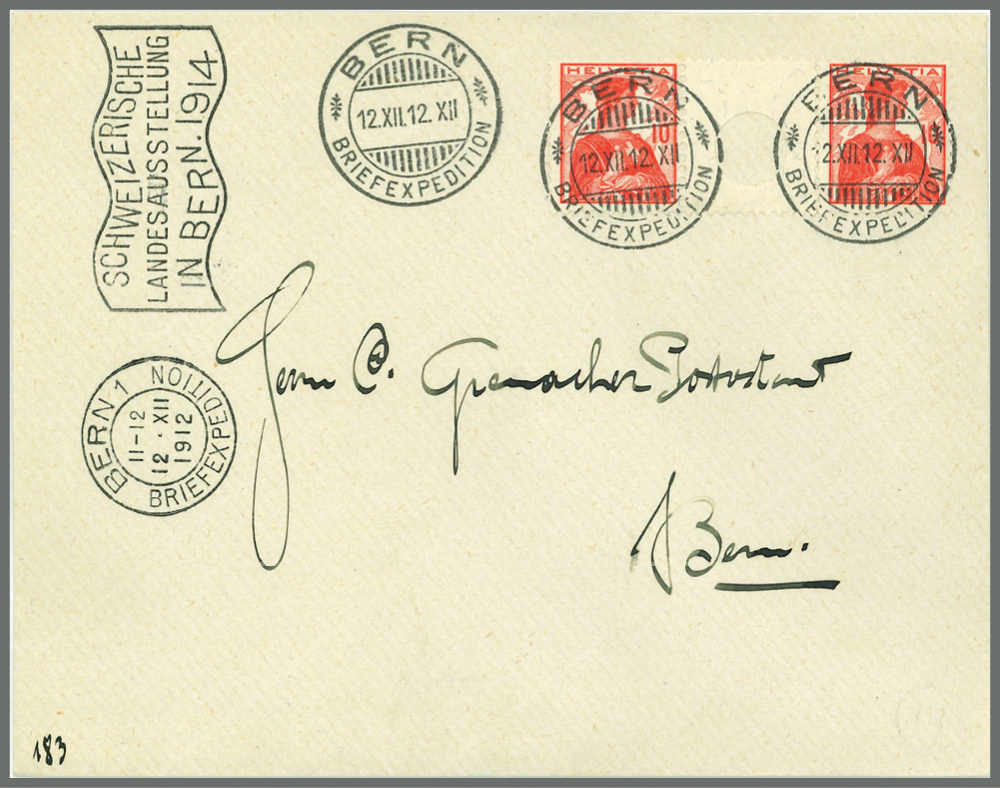 SCHWEIZERISCHE
LANDESAUSSTELLUNG
IN BERN. 1914
BERN
12.XII.12. XII
BRIEFEXPEDITION
HELVETIA
10
BERN
12.XII.12. XII
BRIEFEXPEDITION
HELVETIA
BERN
12.XII.12. XII
BRIEFEXPEDITION
Herrn C.
Bern.
BERN 1
11-12
12 · XII
1912
BRIEFEXPEDITION
183